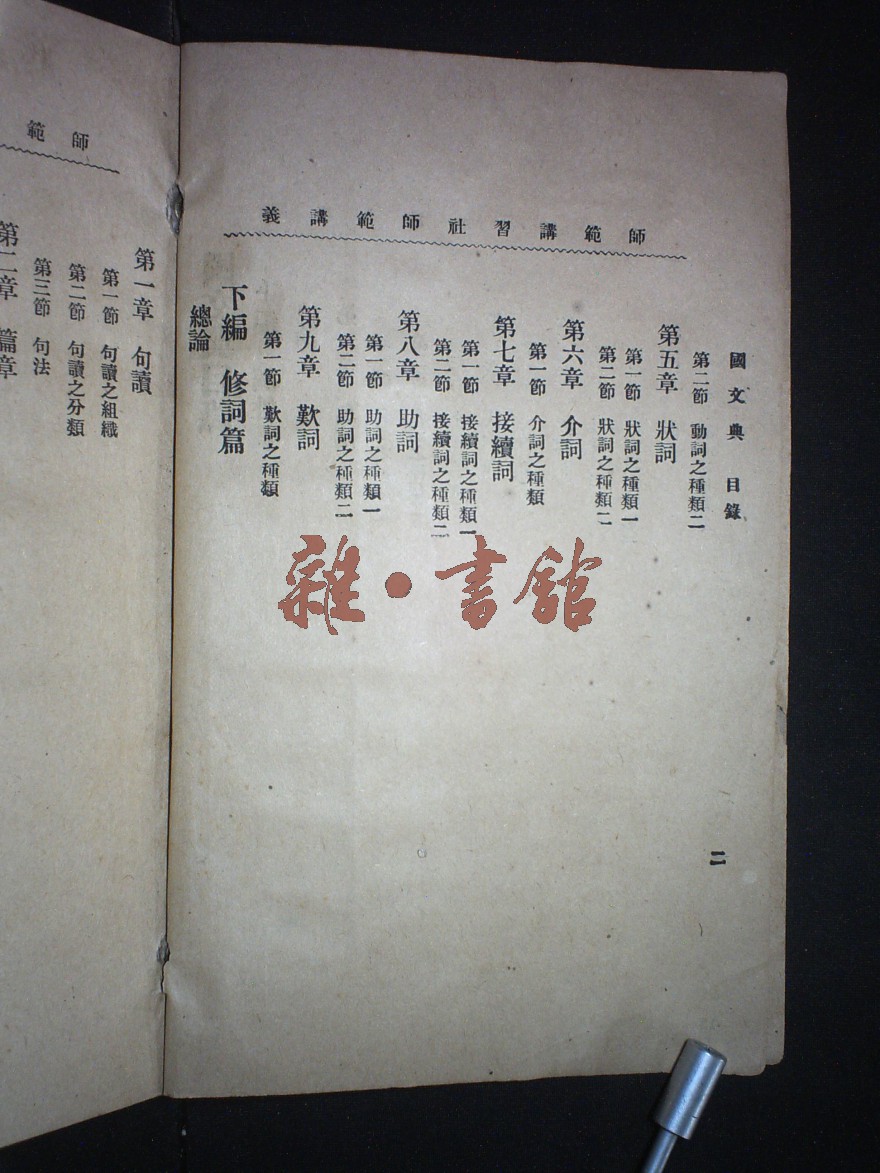 師範講習社師範講義
國文典 目錄
第二節 動詞之種類二
第五章 狀詞
第一節 狀詞之種類一
第二節 狀詞之種類二
第六章 介詞
第一節 介詞之種類
第七章 接續詞
第一節 接續詞之種類一
第二節 接續詞之種類二
第八章 助詞
第一節 助詞之種類一
第二節 助詞之種類二
第九章 歎詞
第一節 歎詞之種類
下編 修詞篇
總論
二
師範
第一章 句讀
第一節 句讀之組織
第二節 句讀之分類
第三節 句法
第二章 篇章
雜·書館